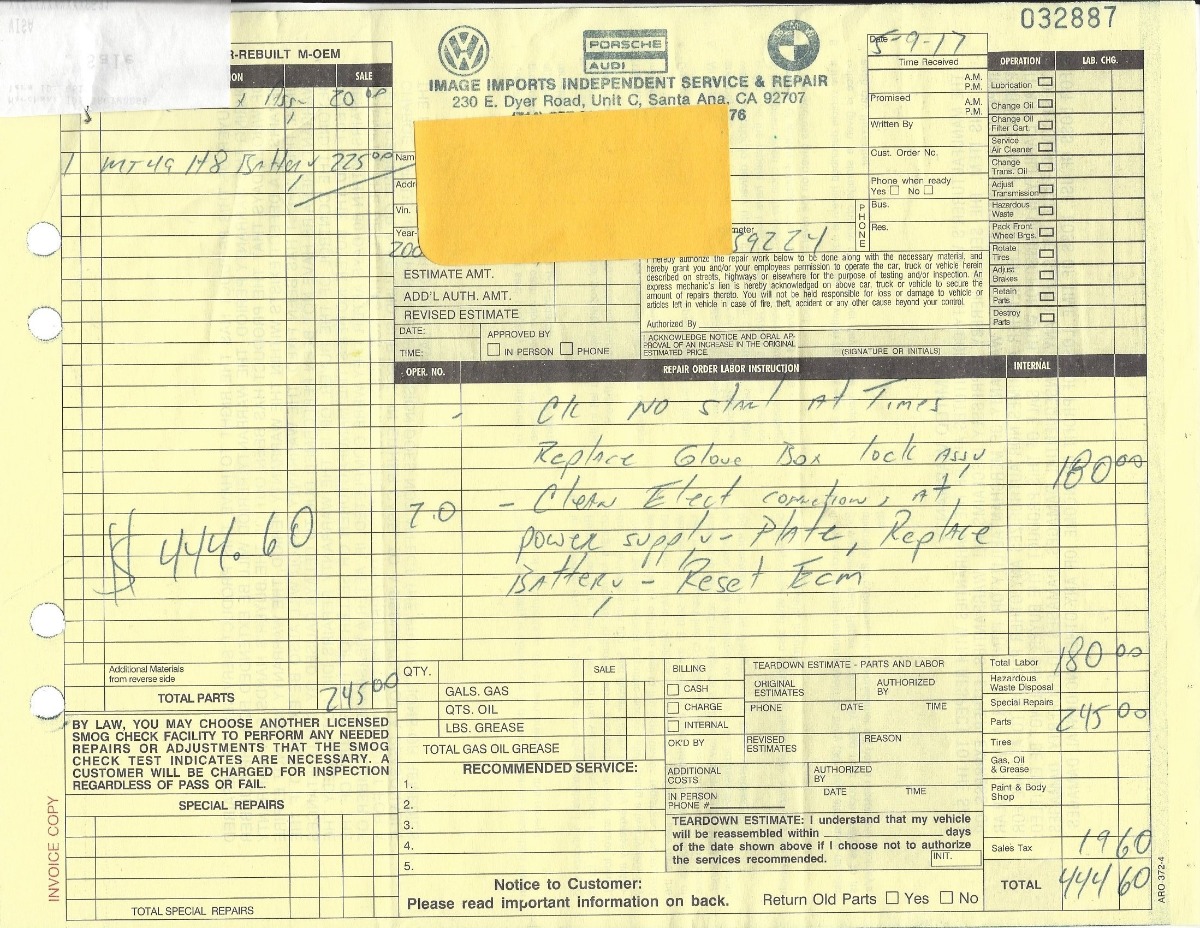 032887
R-REBUILT M-OEM
ON SALE
20 00
1 MT49 H8 Battery 225 00
$444.60
Additional Materials
from reverse side
TOTAL PARTS 245 00
BY LAW, YOU MAY CHOOSE ANOTHER LICENSED
SMOG CHECK FACILITY TO PERFORM ANY NEEDED
REPAIRS OR ADJUSTMENTS THAT THE SMOG
CHECK TEST INDICATES ARE NECESSARY. A
CUSTOMER WILL BE CHARGED FOR INSPECTION
REGARDLESS OF PASS OR FAIL.
SPECIAL REPAIRS
TOTAL SPECIAL REPAIRS
INVOICE COPY
PORSCHE
AUDI
BMW
IMAGE IMPORTS INDEPENDENT SERVICE & REPAIR
230 E. Dyer Road, Unit C, Santa Ana, CA 92707
76
Name
Addr
Vin.
Year-
200
39224
ESTIMATE AMT.
ADD'L AUTH. AMT.
REVISED ESTIMATE
DATE:
TIME:
APPROVED BY
IN PERSON PHONE
I hereby authorize the repair work below to be done along with the necessary material, and
hereby grant you and/or your employees permission to operate the car, truck or vehicle herein
described on streets, highways or elsewhere for the purpose of testing and/or inspection. An
express mechanic's lien is hereby acknowledged on above car, truck or vehicle to secure the
amount of repairs thereto. You will not be held responsible for loss or damage to vehicle or
articles left in vehicle in case of fire, theft, accident or any other cause beyond your control.
Authorized By
I ACKNOWLEDGE NOTICE AND ORAL AP-
PROVAL OF AN INCREASE IN THE ORIGINAL
ESTIMATED PRICE.
(SIGNATURE OR INITIALS)
Date
5-9-17
Time Received
A.M.
P.M.
Promised
A.M.
P.M.
Written By
Cust. Order No.
Phone when ready
Yes No
PHONE
Bus.
Res.
OPERATION LAB. CHG.
Lubrication
Change Oil
Change Oil
Filter Cart.
Service
Air Cleaner
Change
Trans. Oil
Adjust
Transmission
Hazardous
Waste
Pack Front
Wheel Brgs.
Rotate
Tires
Adjust
Brakes
Retain
Parts
Destroy
Parts
OPER. NO. REPAIR ORDER LABOR INSTRUCTION INTERNAL
- CK NO start At Times
Replace Glove Box lock Assy 180 00
- Clean Elect connections At
power supply - Plate, Replace
Battery - Reset Ecm
QTY. SALE
GALS. GAS
QTS. OIL
LBS. GREASE
TOTAL GAS OIL GREASE
RECOMMENDED SERVICE:
1.
2.
3.
4.
5.
Notice to Customer:
Please read important information on back.
BILLING
CASH
CHARGE
INTERNAL
OK'D BY
TEARDOWN ESTIMATE - PARTS AND LABOR
ORIGINAL
ESTIMATES
AUTHORIZED
BY
PHONE DATE TIME
REVISED
ESTIMATES
REASON
ADDITIONAL
COSTS
AUTHORIZED
BY
IN PERSON
PHONE #
DATE TIME
TEARDOWN ESTIMATE: I understand that my vehicle
will be reassembled within days
of the date shown above if I choose not to authorize
the services recommended.
INIT.
Return Old Parts Yes No
Total Labor 180 00
Hazardous
Waste Disposal
Special Repairs
Parts 245 00
Tires
Gas, Oil
& Grease
Paint & Body
Shop
Sales Tax 19 60
TOTAL 444 60
ARO 372-4